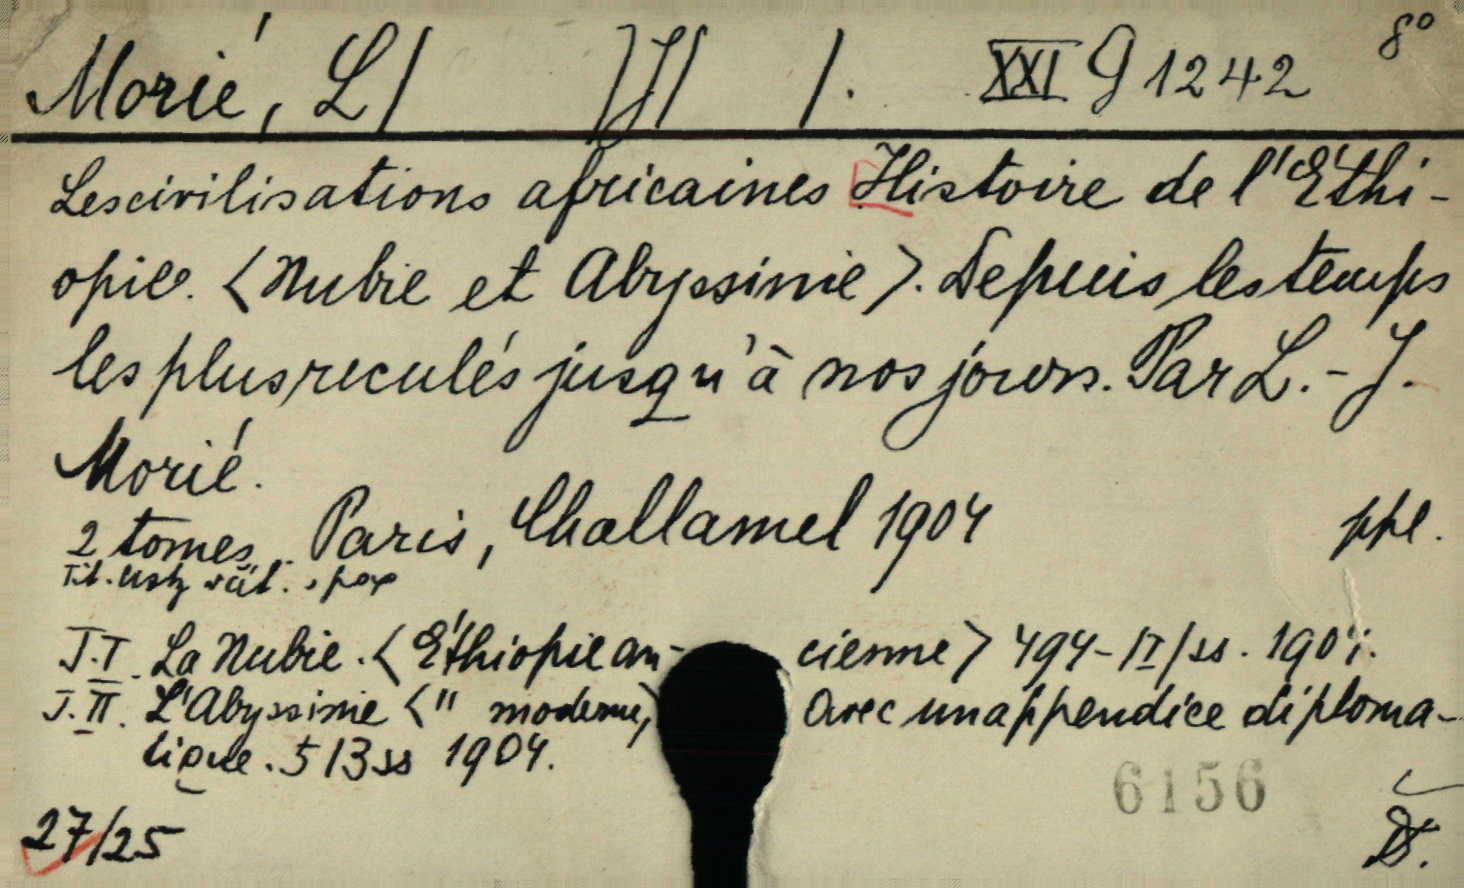 Morié, L/ /J/ /. XXI G 1242 8°
Les civilisations africaines Histoire de l'Éthi-
opie. <Nubie et Abyssinie>. Depuis les temps
les plus reculés jusqu'à nos jours. Par L.-J.
Morié.
2 tomes. Paris, Challamel 1904 ppl.
T.I. La Nubie. <Éthiopie an- cienne> 494-II/ss. 1904.
T.II. L'Abyssinie <" moderne> avec un appendice diploma-
tique. 513 ss 1904.
6156
27/25